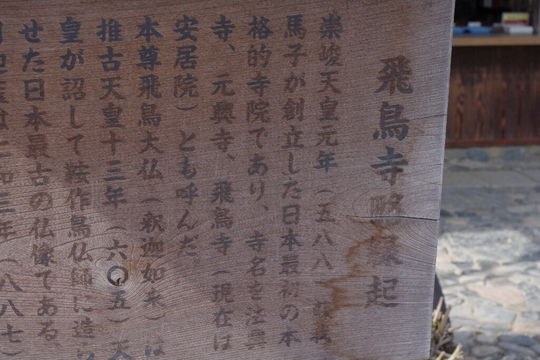 飛鳥寺略縁起
崇峻天皇元年(五八八
馬子が創立した日本最初の本
格的寺院であり、寺名を法興
寺、元興寺、飛鳥寺(現在は
安居院)とも呼んだ
本尊飛鳥大仏(釈迦如来)は
推古天皇十三年(六〇五)天
皇が詔して鞍作鳥仏師に造ら
せた日本最古の仏像である。
三年(八八七)